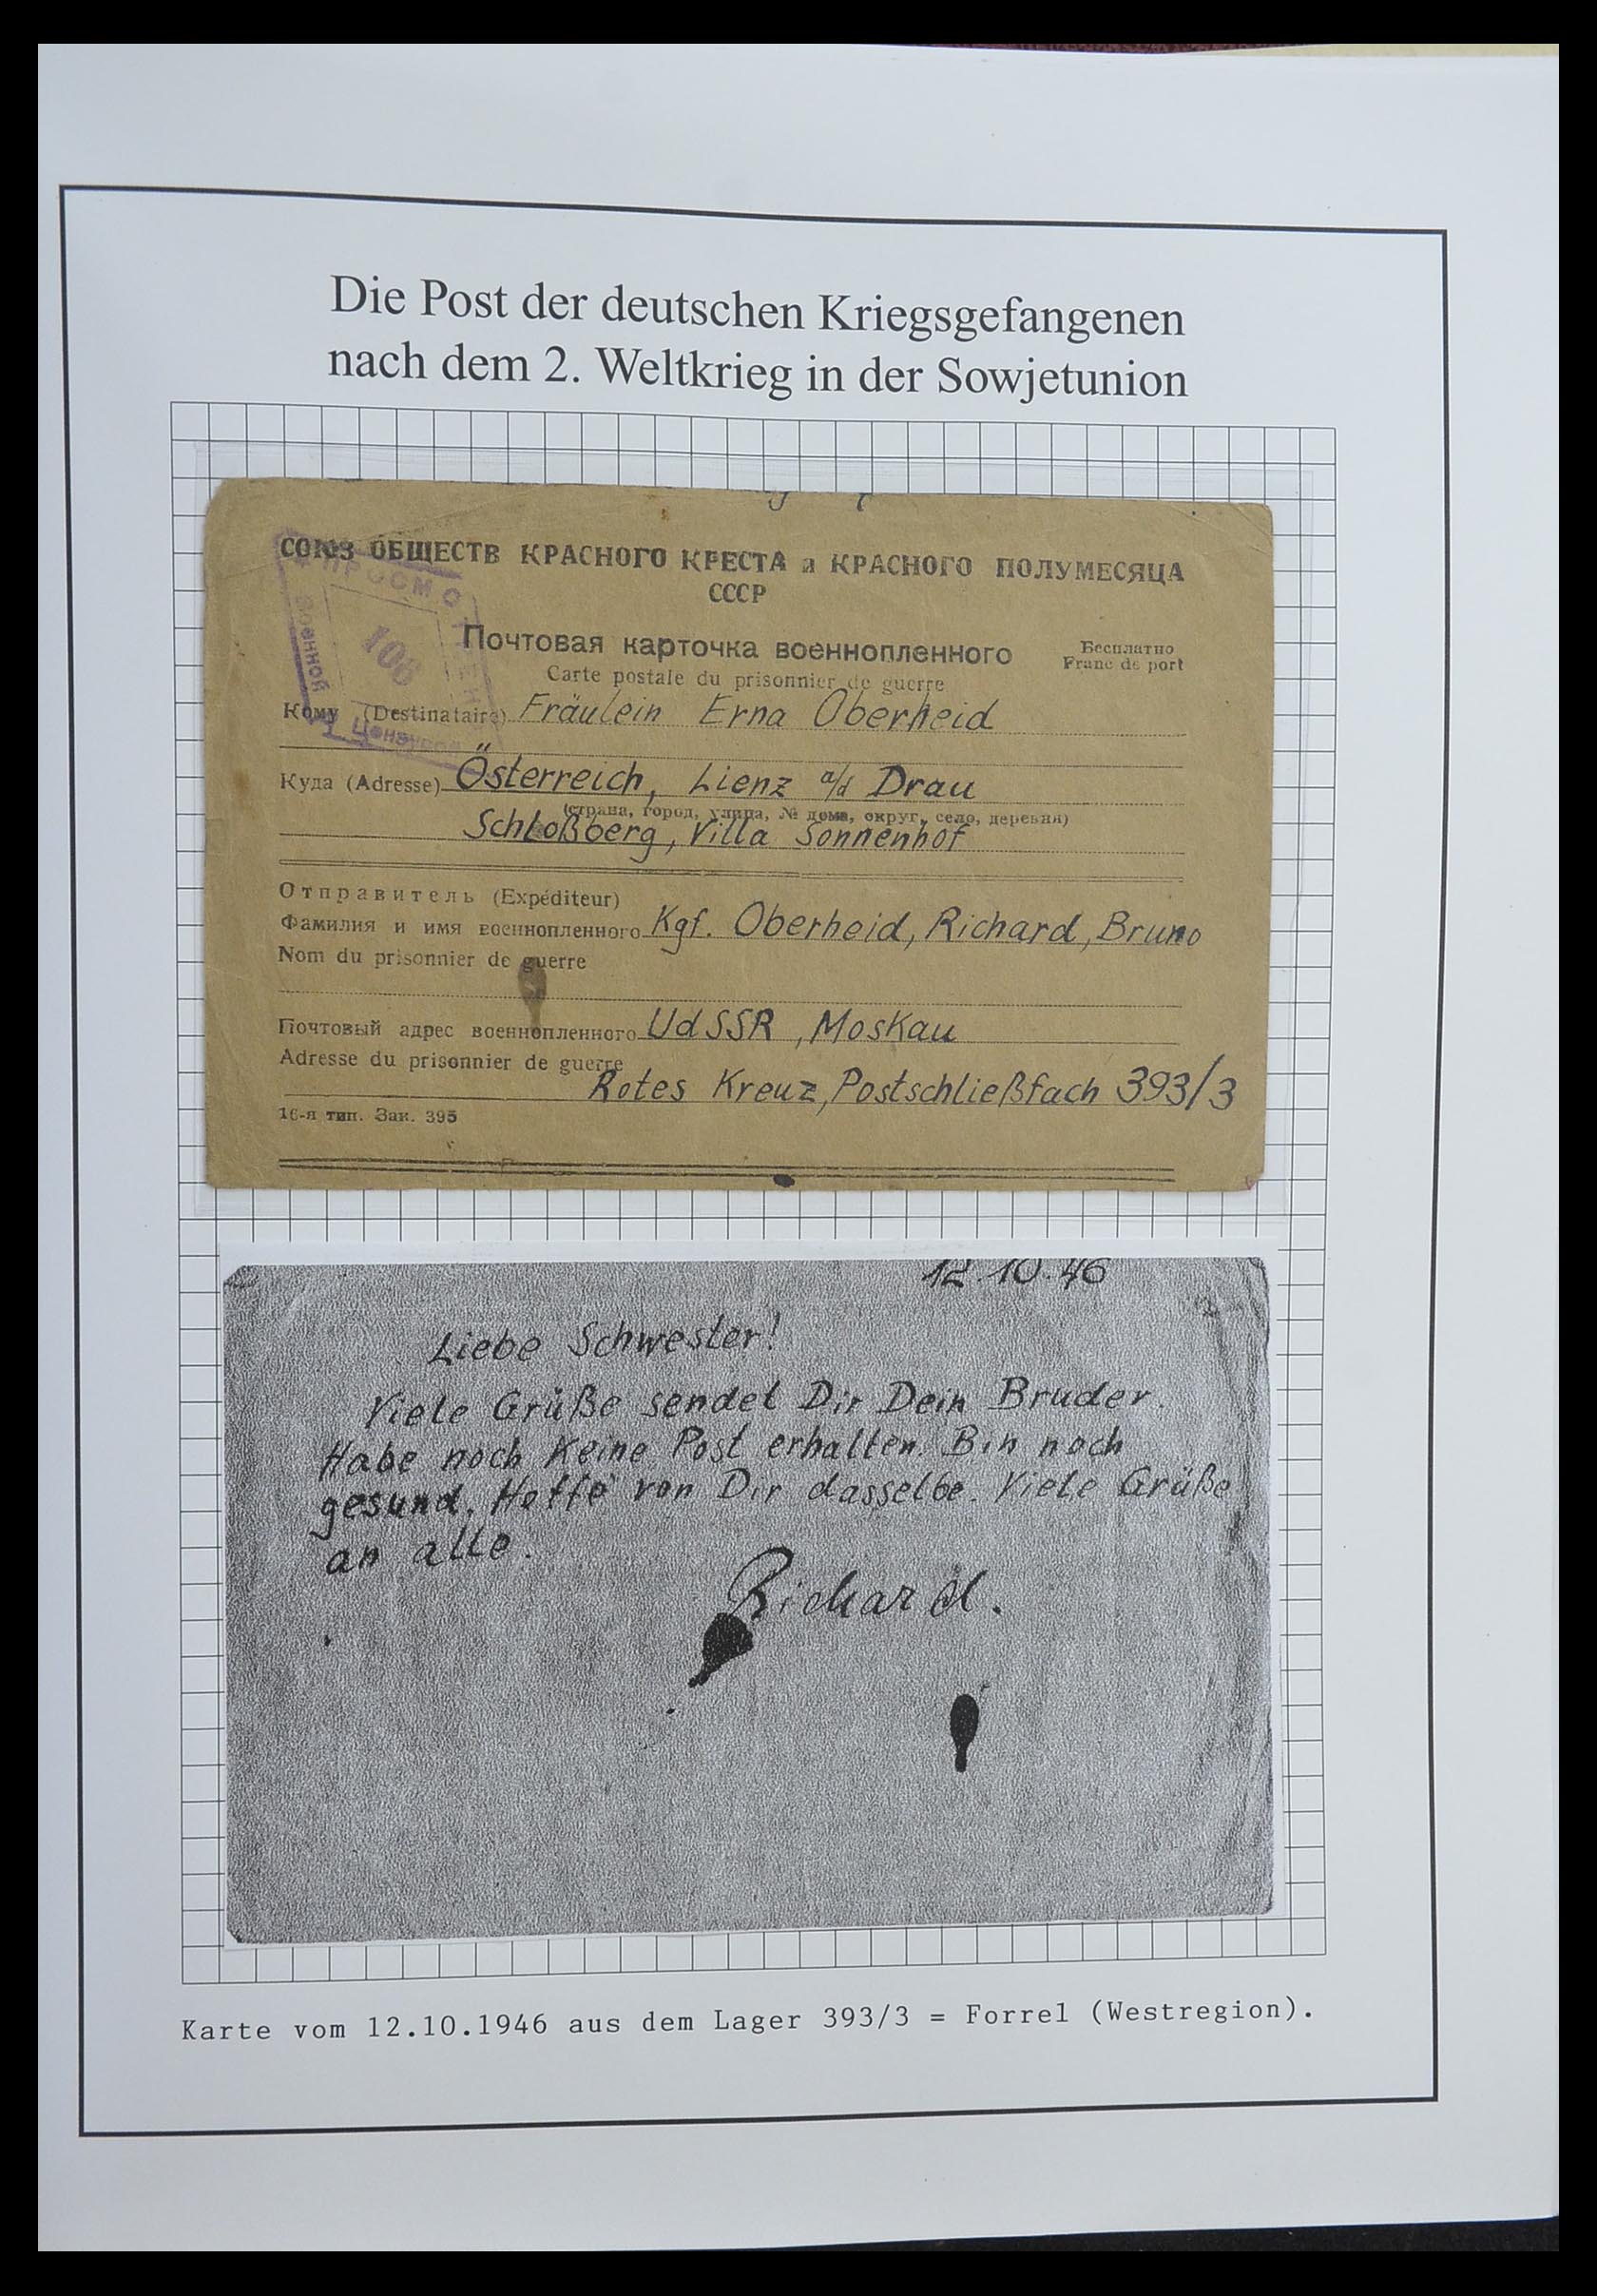 Die Post der deutschen Kriegsgefangenen
nach dem 2. Weltkrieg in der Sowjetunion
СОЮЗ ОБЩЕСТВ КРАСНОГО КРЕСТА и КРАСНОГО ПОЛУМЕСЯЦА
СССР
ПРОСМОТРЕНО
Военной
108
Цензурой
Почтовая карточка военнопленного
Бесплатно
Carte postale du prisonnier de guerre
Franc de port
Кому (Destinataire) Fräulein Erna Oberheid
Куда (Adresse) Österreich, Lienz a/d Drau
(страна, город, улица, № дома, округ, село, деревня)
Schloßberg, Villa Sonnenhof
Отправитель (Expéditeur)
Фамилия и имя военнопленного Kgf. Oberheid, Richard, Bruno
Nom du prisonnier de guerre
Почтовый адрес военнопленного UdSSR, Moskau
Adresse du prisonnier de guerre
Rotes Kreuz, Postschließfach 393/3
16-я тип. Зак. 395
12.10.46
Liebe Schwester!
Viele Grüße sendet Dir Dein Bruder.
Habe noch keine Post erhalten. Bin noch
gesund. Hoffe von Dir dasselbe. Viele Grüße
an alle.
Richard.
Karte vom 12.10.1946 aus dem Lager 393/3 = Forrel (Westregion).